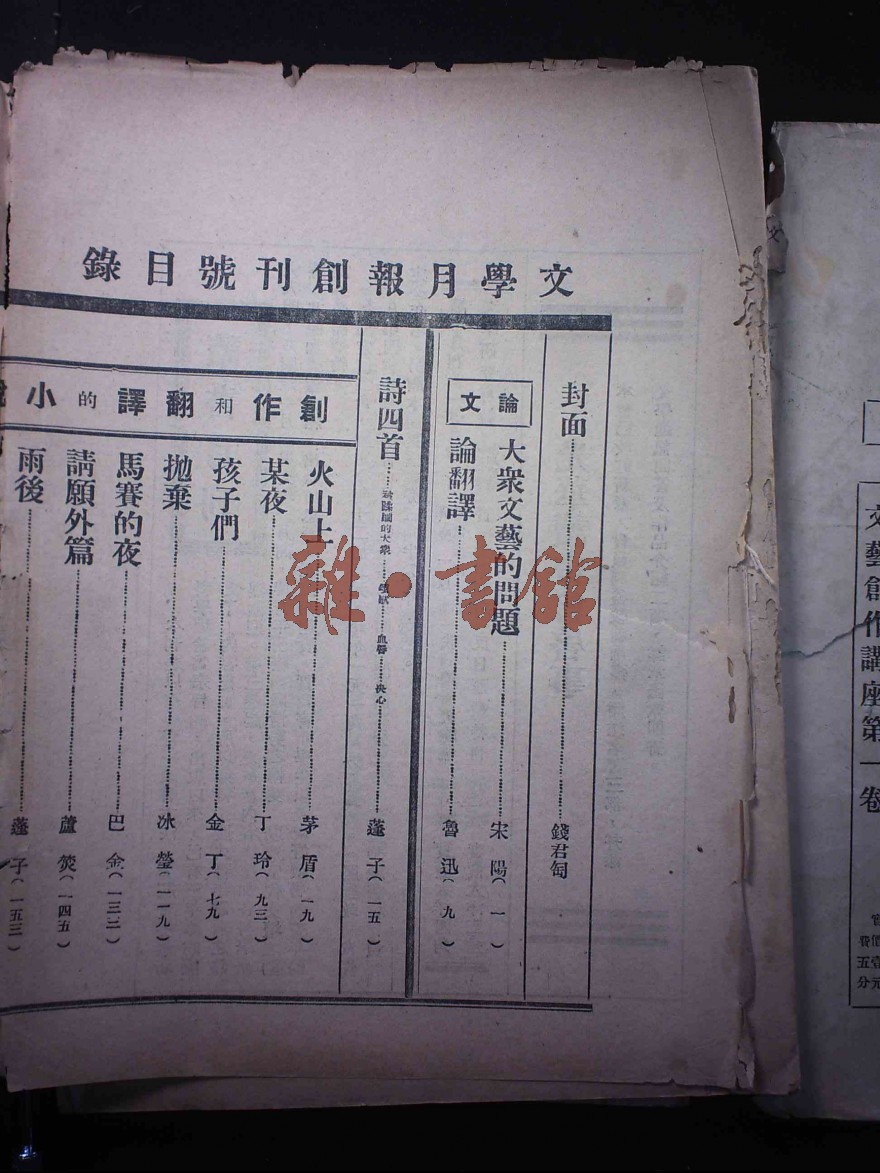 文學月報創刊號目錄
封面……錢君匋
論文
大衆文藝的問題……宋陽(一)
論翻譯……魯迅(九)
詩四首……的大衆……血……決心……蓬子(一五)
創作和翻譯的小
火山上……茅盾(一九)
某夜……丁玲(九三)
孩子們……金丁(七九)
抛棄……冰瑩(一一九)
馬賽的夜……巴金(一三二)
請願外篇……蘆焚(一四五)
雨後……蓬子(一五三)
雜·書館
文藝創作講座第一卷